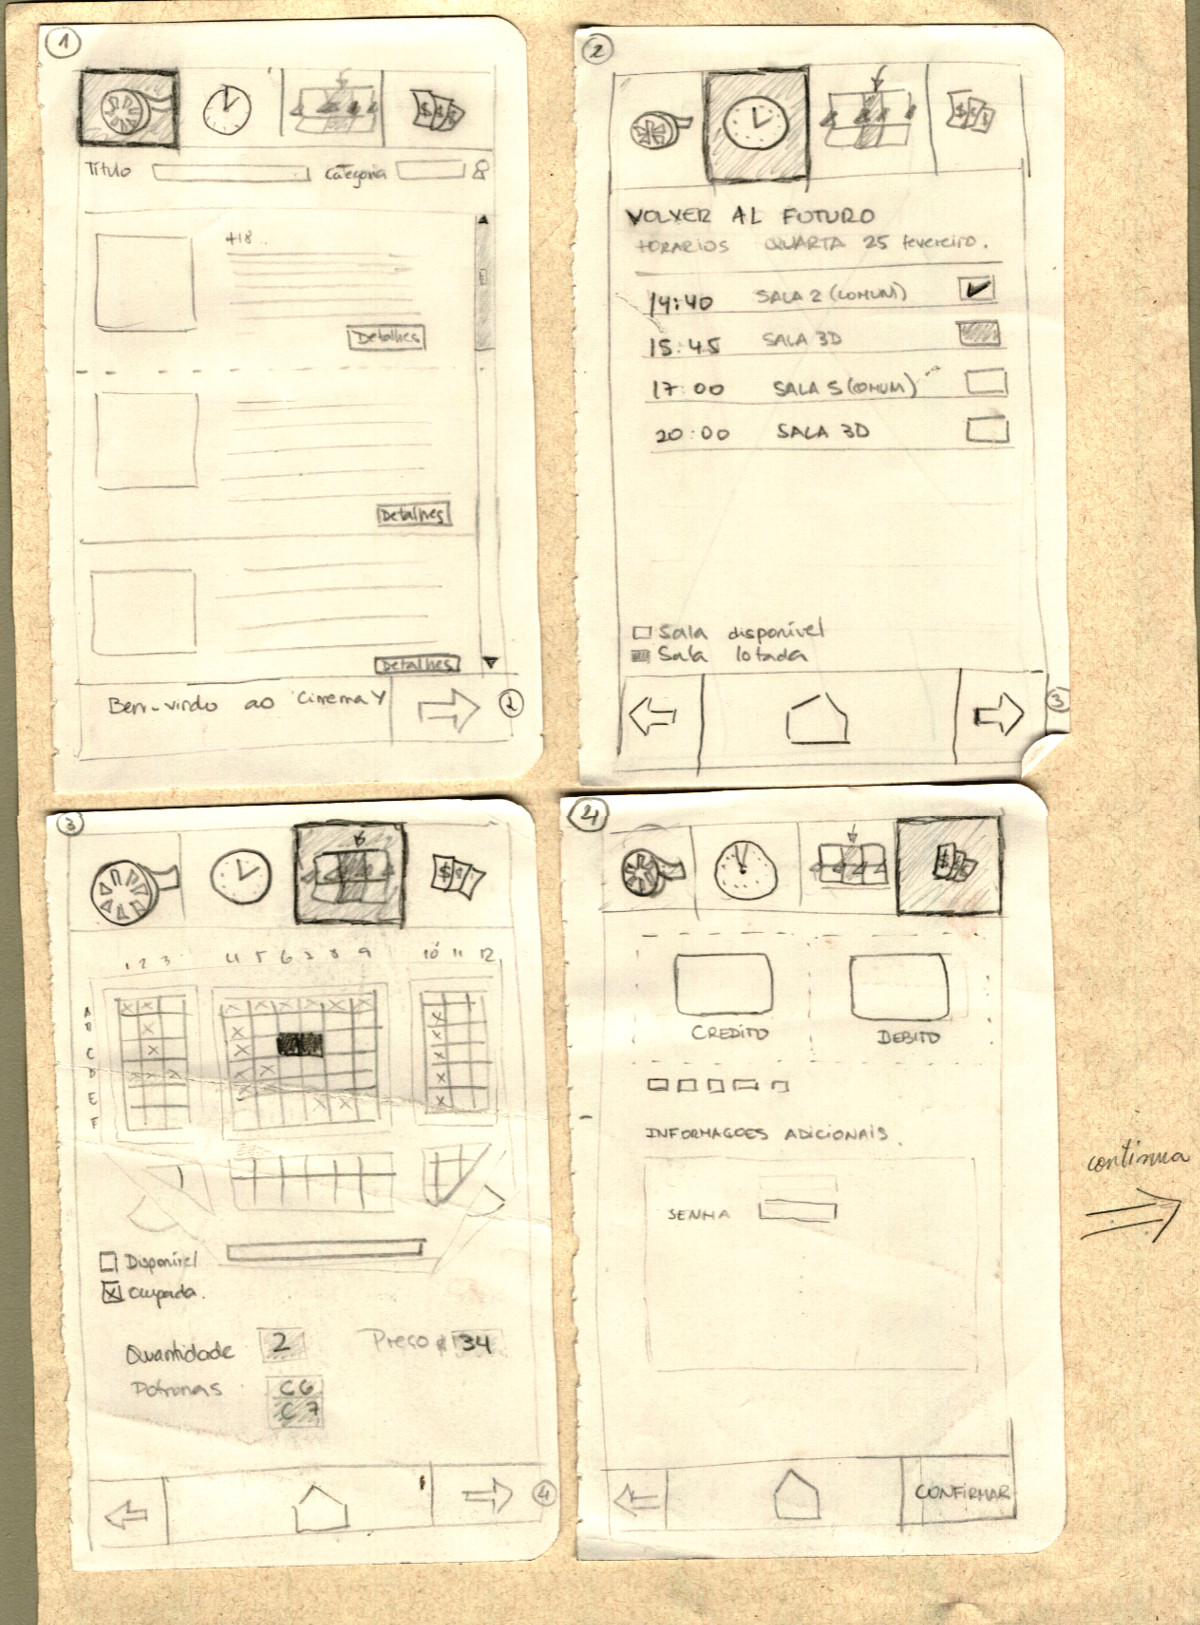 1
Título Categoria
+18
Detalhes
Detalhes
Detalhes
Bem-vindo ao Cinema Y
2
2
VOLVER AL FUTURO
HORARIOS QUARTA 25 fevereiro.
14:40 SALA 2 (COMUM)
15:45 SALA 3D
17:00 SALA 5 (COMUM)
20:00 SALA 3D
Sala disponível
Sala lotada
3
3
$
1 2 3 4 5 6 7 8 9 10 11 12
A
B
C
D
E
F
Disponível
Ocupada.
Quantidade 2 Preço 34
Potronas C6
C7
4
4
CREDITO DEBITO
INFORMAÇOES ADICIONAIS.
SENHA
CONFIRMAR
continua